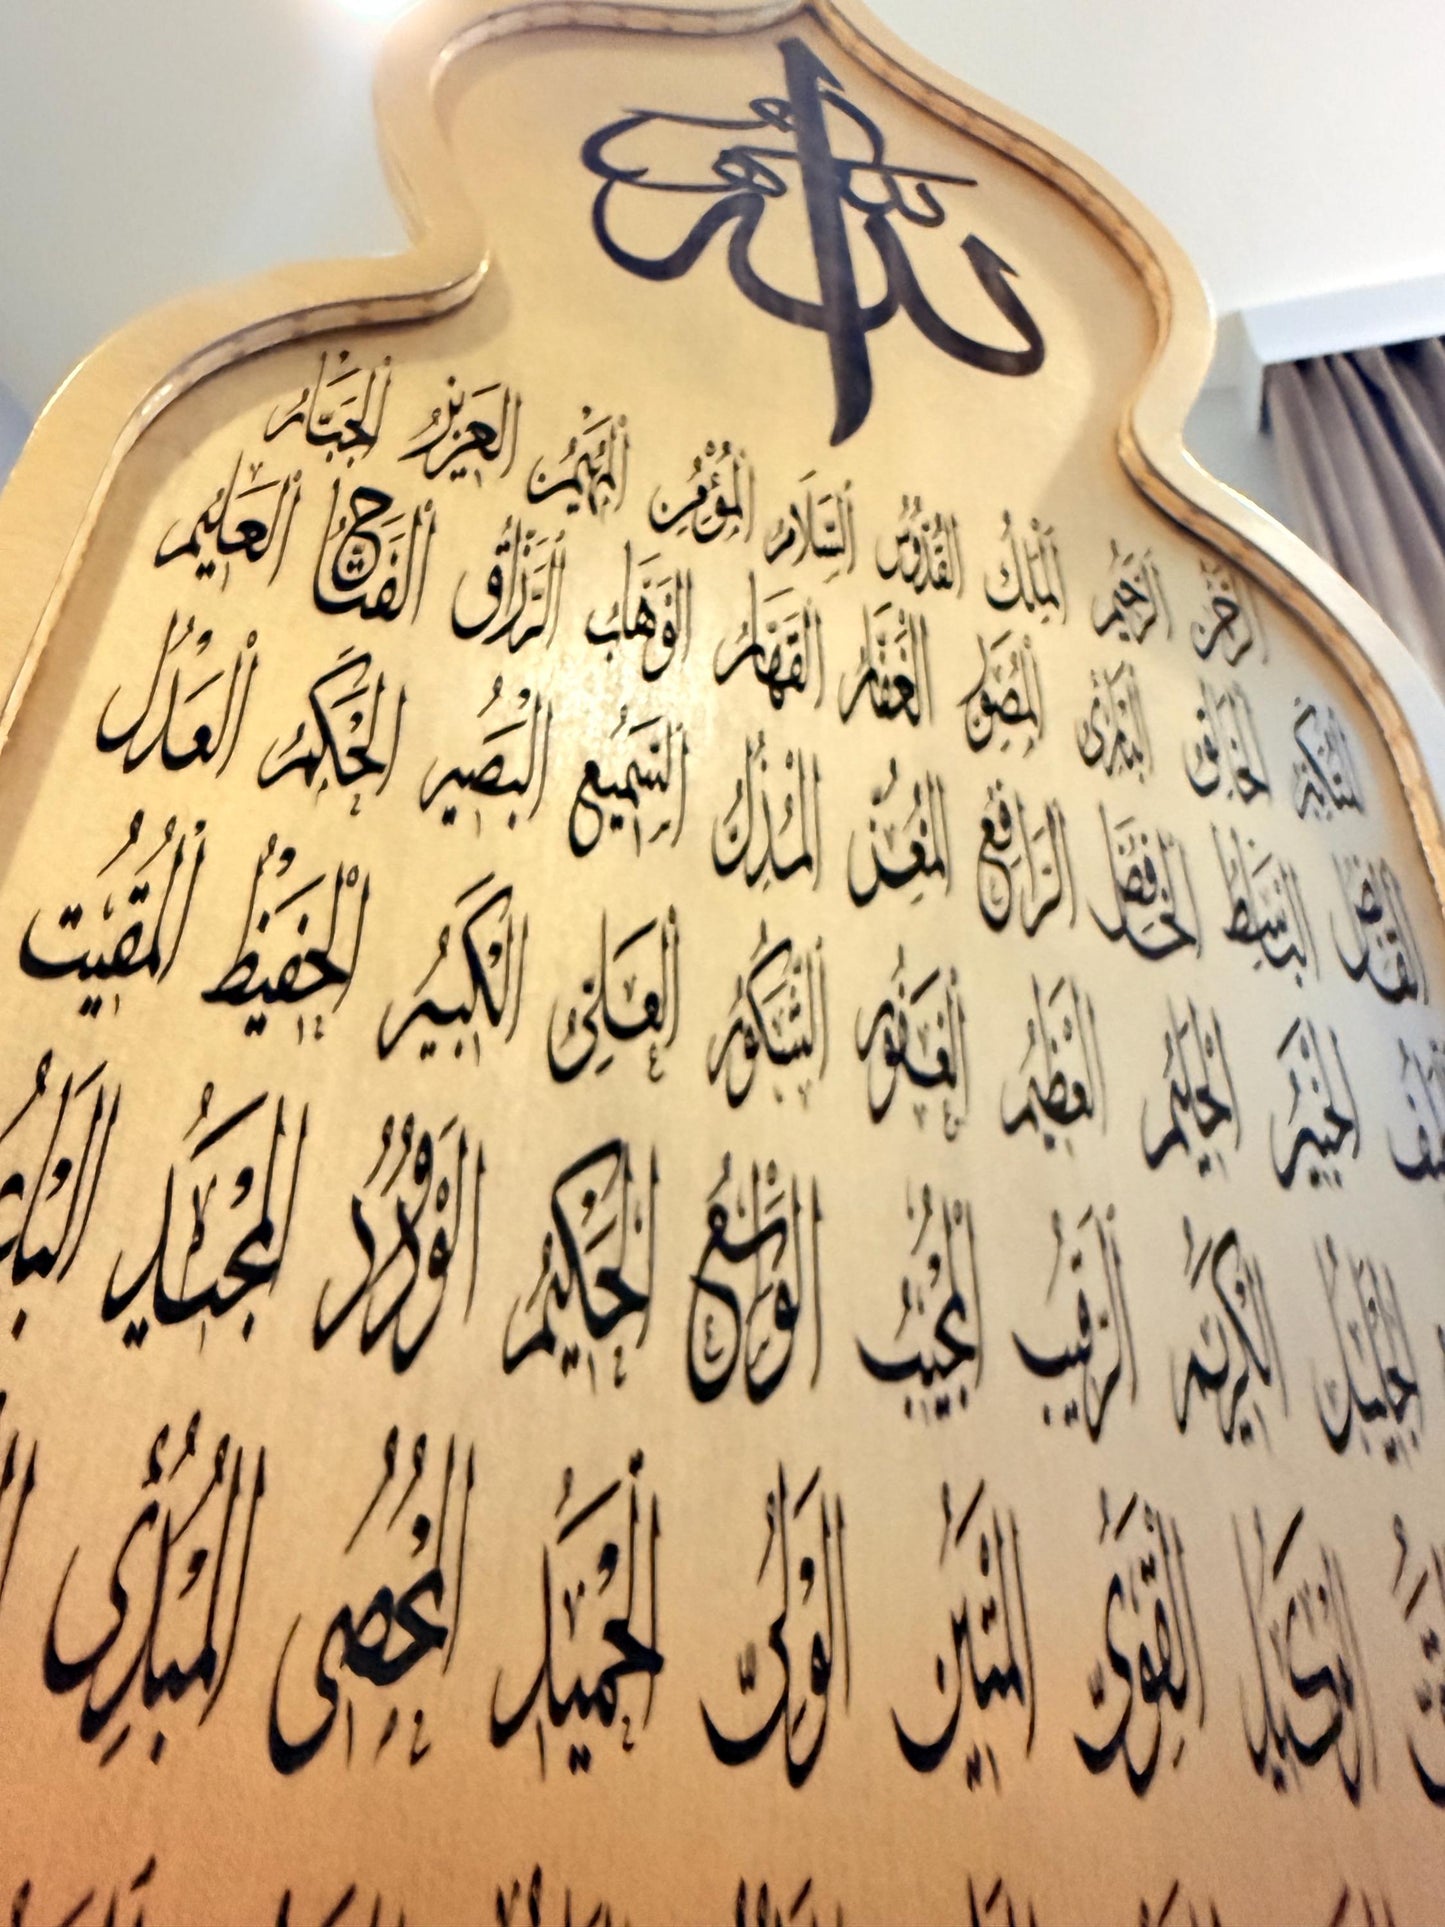 الله
الرَّحْمٰنُ الرَّحِيمُ الْمَلِكُ الْقُدُّوسُ السَّلَامُ الْمُؤْمِنُ الْمُهَيْمِنُ الْعَزِيزُ الْجَبَّارُ
الْمُتَكَبِّرُ الْخَالِقُ الْبَارِئُ الْمُصَوِّرُ الْغَفَّارُ الْقَهَّارُ الْوَهَّابُ الرَّزَّاقُ الْفَتَّاحُ الْعَلِيمُ
الْقَابِضُ الْبَاسِطُ الْخَافِضُ الرَّافِعُ الْمُعِزُّ الْمُذِلُّ السَّمِيعُ الْبَصِيرُ الْحَكَمُ الْعَدْلُ
الْخَبِيرُ الْحَلِيمُ الْعَظِيمُ الْغَفُورُ الشَّكُورُ الْعَلِيُّ الْكَبِيرُ الْحَفِيظُ الْمُقِيتُ
الْجَلِيلُ الْكَرِيمُ الرَّقِيبُ الْمُجِيبُ الْوَاسِعُ الْحَكِيمُ الْوَدُودُ الْمَجِيدُ
الْوَكِيلُ الْقَوِيُّ الْمَتِينُ الْوَلِيُّ الْحَمِيدُ الْمُحْصِي الْمُبْدِئُ